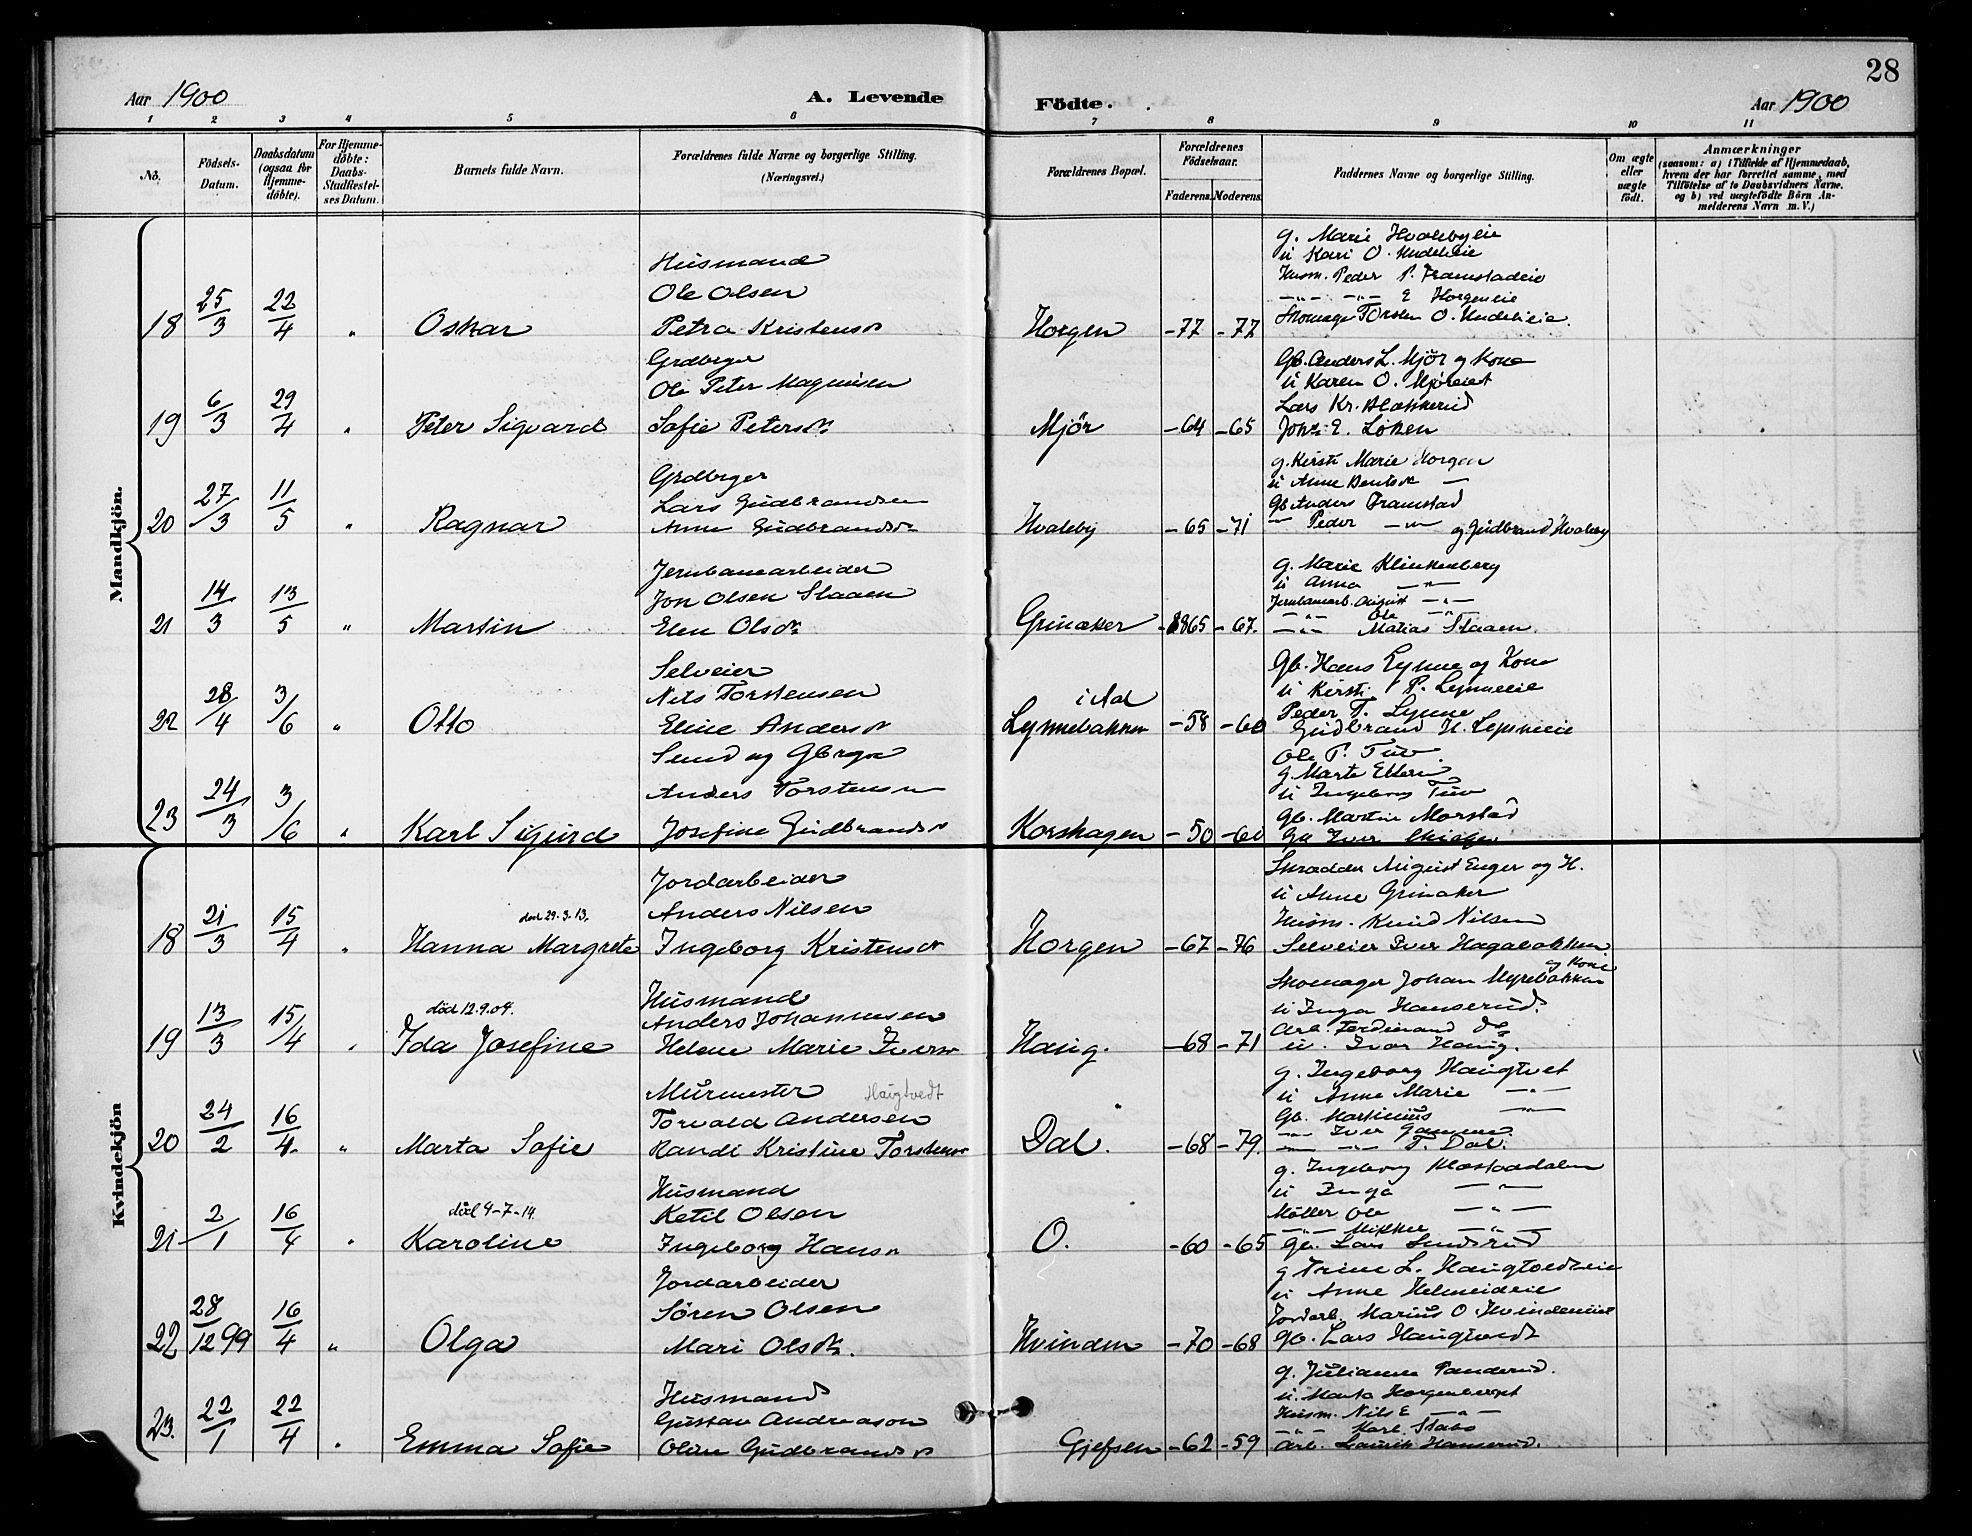 28
Aar 1900
A. Levende
Födte.
Aar 1900
1 2 3 4 5 6 7 8 9 10 11
No.
Födsels-
Datum.
Daabsdatum
(ogsaa for
Hjemme-
döbte).
For Hjemme-
döbte:
Daabs-
Stadfæstel-
ses Datum.
Barnets fulde Navn.
Forældrenes fulde Navne og borgerlige Stilling.
(Næringsvei.)
Forældrenes Bopæl.
Forældrenes
Födselsaar.
Faderens. Moderens.
Faddernes Navne og borgerlige Stilling.
Om ægte
eller
uægte
födt.
Anmærkninger
(saasom: a) i Tilfælde af Hjemmedaab,
hvem der har forrettet samme, med
Tilföielse af to Daabsvidners Navne.
og b) ved uægtefödte Börn An-
melderens Navn m. V.)
Mandkjön.
18 25/3 22/4 " Oskar
Husmand
Ole Olsen
Petra Kristensdr
Horgen -77 -77
g. Marie Hvalebyeie
u Kari O.
Husm. Peder P. Framstadeie
-"- -"- E Horgeneie
Torsten O.
19 6/3 29/4 " Peter Sigvard
Grdbrger
Ole Peter Magnusen
Sofie Petersdr
Mjør -64 -65
Gb. Anders L. Mjør og Kone
u Karen O. Mjøreiet
Lars Kr. Blækkerud
Johs E. Løken
20 27/3 11/5 " Ragnar
Grdbrger
Lars Gudbrandsen
Anne Gudbrandsdr
Hvaleby -65 -71
g. Kirsti Marie Horgen
u Anne —
Gb Anders Framstad
— Peder -"- og Gudbrand Hvaleby
21 14/3 13/5 " Martin
Jernbanearbeider
Jon Olsen Staaen
Elen Olsdr
Grinaker -1865 -67.
g. Marie Klinkenberg
u Anna -"-
Jernbanearb. August -"-
-"- Ole -"-
-"- Matias Staaen.
22 28/4 3/6 " Otto
Selveier
Nils Torstensen
Eline Andersdr
i Aal
Lynnebakken -58 -60
Gb. Hans Lynne og Kone
u Kirsti P. Lynneeie
Peder T. Lynne
Gudbrand H. Lynneeie
Ole P. Tuv.
23 24/3 3/6 " Karl Sigurd
Anders Torstensen
Josefine Gudbrandsdr
Korshagen -50 -60
g. Marte
u Ingeborg Tuv
Gb. Martin Morstad
Iver
Kvindekjön
18 21/3 15/4 " Hanna Margrete
død 29.3.13.
Jordarbeider
Anders Nilsen
Ingeborg Kristensdr
Horgen -67 -76
Skrædder August Enger og H.
u Anne Grinaker
Husm. Knud Nilsen
Selveier Iver Hagabakken
19 13/3 15/4 " Ida Josefine
død 12.9.04.
Husmand
Anders Johannesen
Helene Marie Iversdr
Haug. -68 -71
og Kone
Skomager Johan Myrebakken
u Inga Hanserud.
Arb. Ferdinand do
u. Ivar Haug.
20 24/2 16/4 " Marta Sofie
Murmester Haugtvedt
Torvald Andersen
Randi Kristine Torstensdr
Dal. -68 -79.
g. Ingeborg Haugtvet
u Anne Marie -"-
Gb. Martinius -"-
-"- Iver
-"- -"- T. Dal.
21 2/1 16/4 " Karoline
død 9-7-14.
Husmand
Ketil Olsen
Ingeborg Hansdr
O. -60 -65
g. Ingeborg Klæstaddalen
u Inga -"-
Møller Ole -"-
-"- Mikkel -"-
Gb. Lars
22 28/12 99 16/4 " Olga
Jordarbeider
Søren Olsen
Mari Olsdr.
Hvinden -70 -68
g Trine L. Haugtvedteie
u Anne
Jordarb. Marius O. Hvindeneiet
Gb. Lars Haugtvedt
23. 22/1 22/4 " Emma Sofie
Husmand
Gustav Andreason
Oline Gudbrandsdr
Gjefsen -62 -59
g. Julianne
u. Marta
Husm. Nils E -"-
-"- Karl
Arb. Laurits Hanserud.